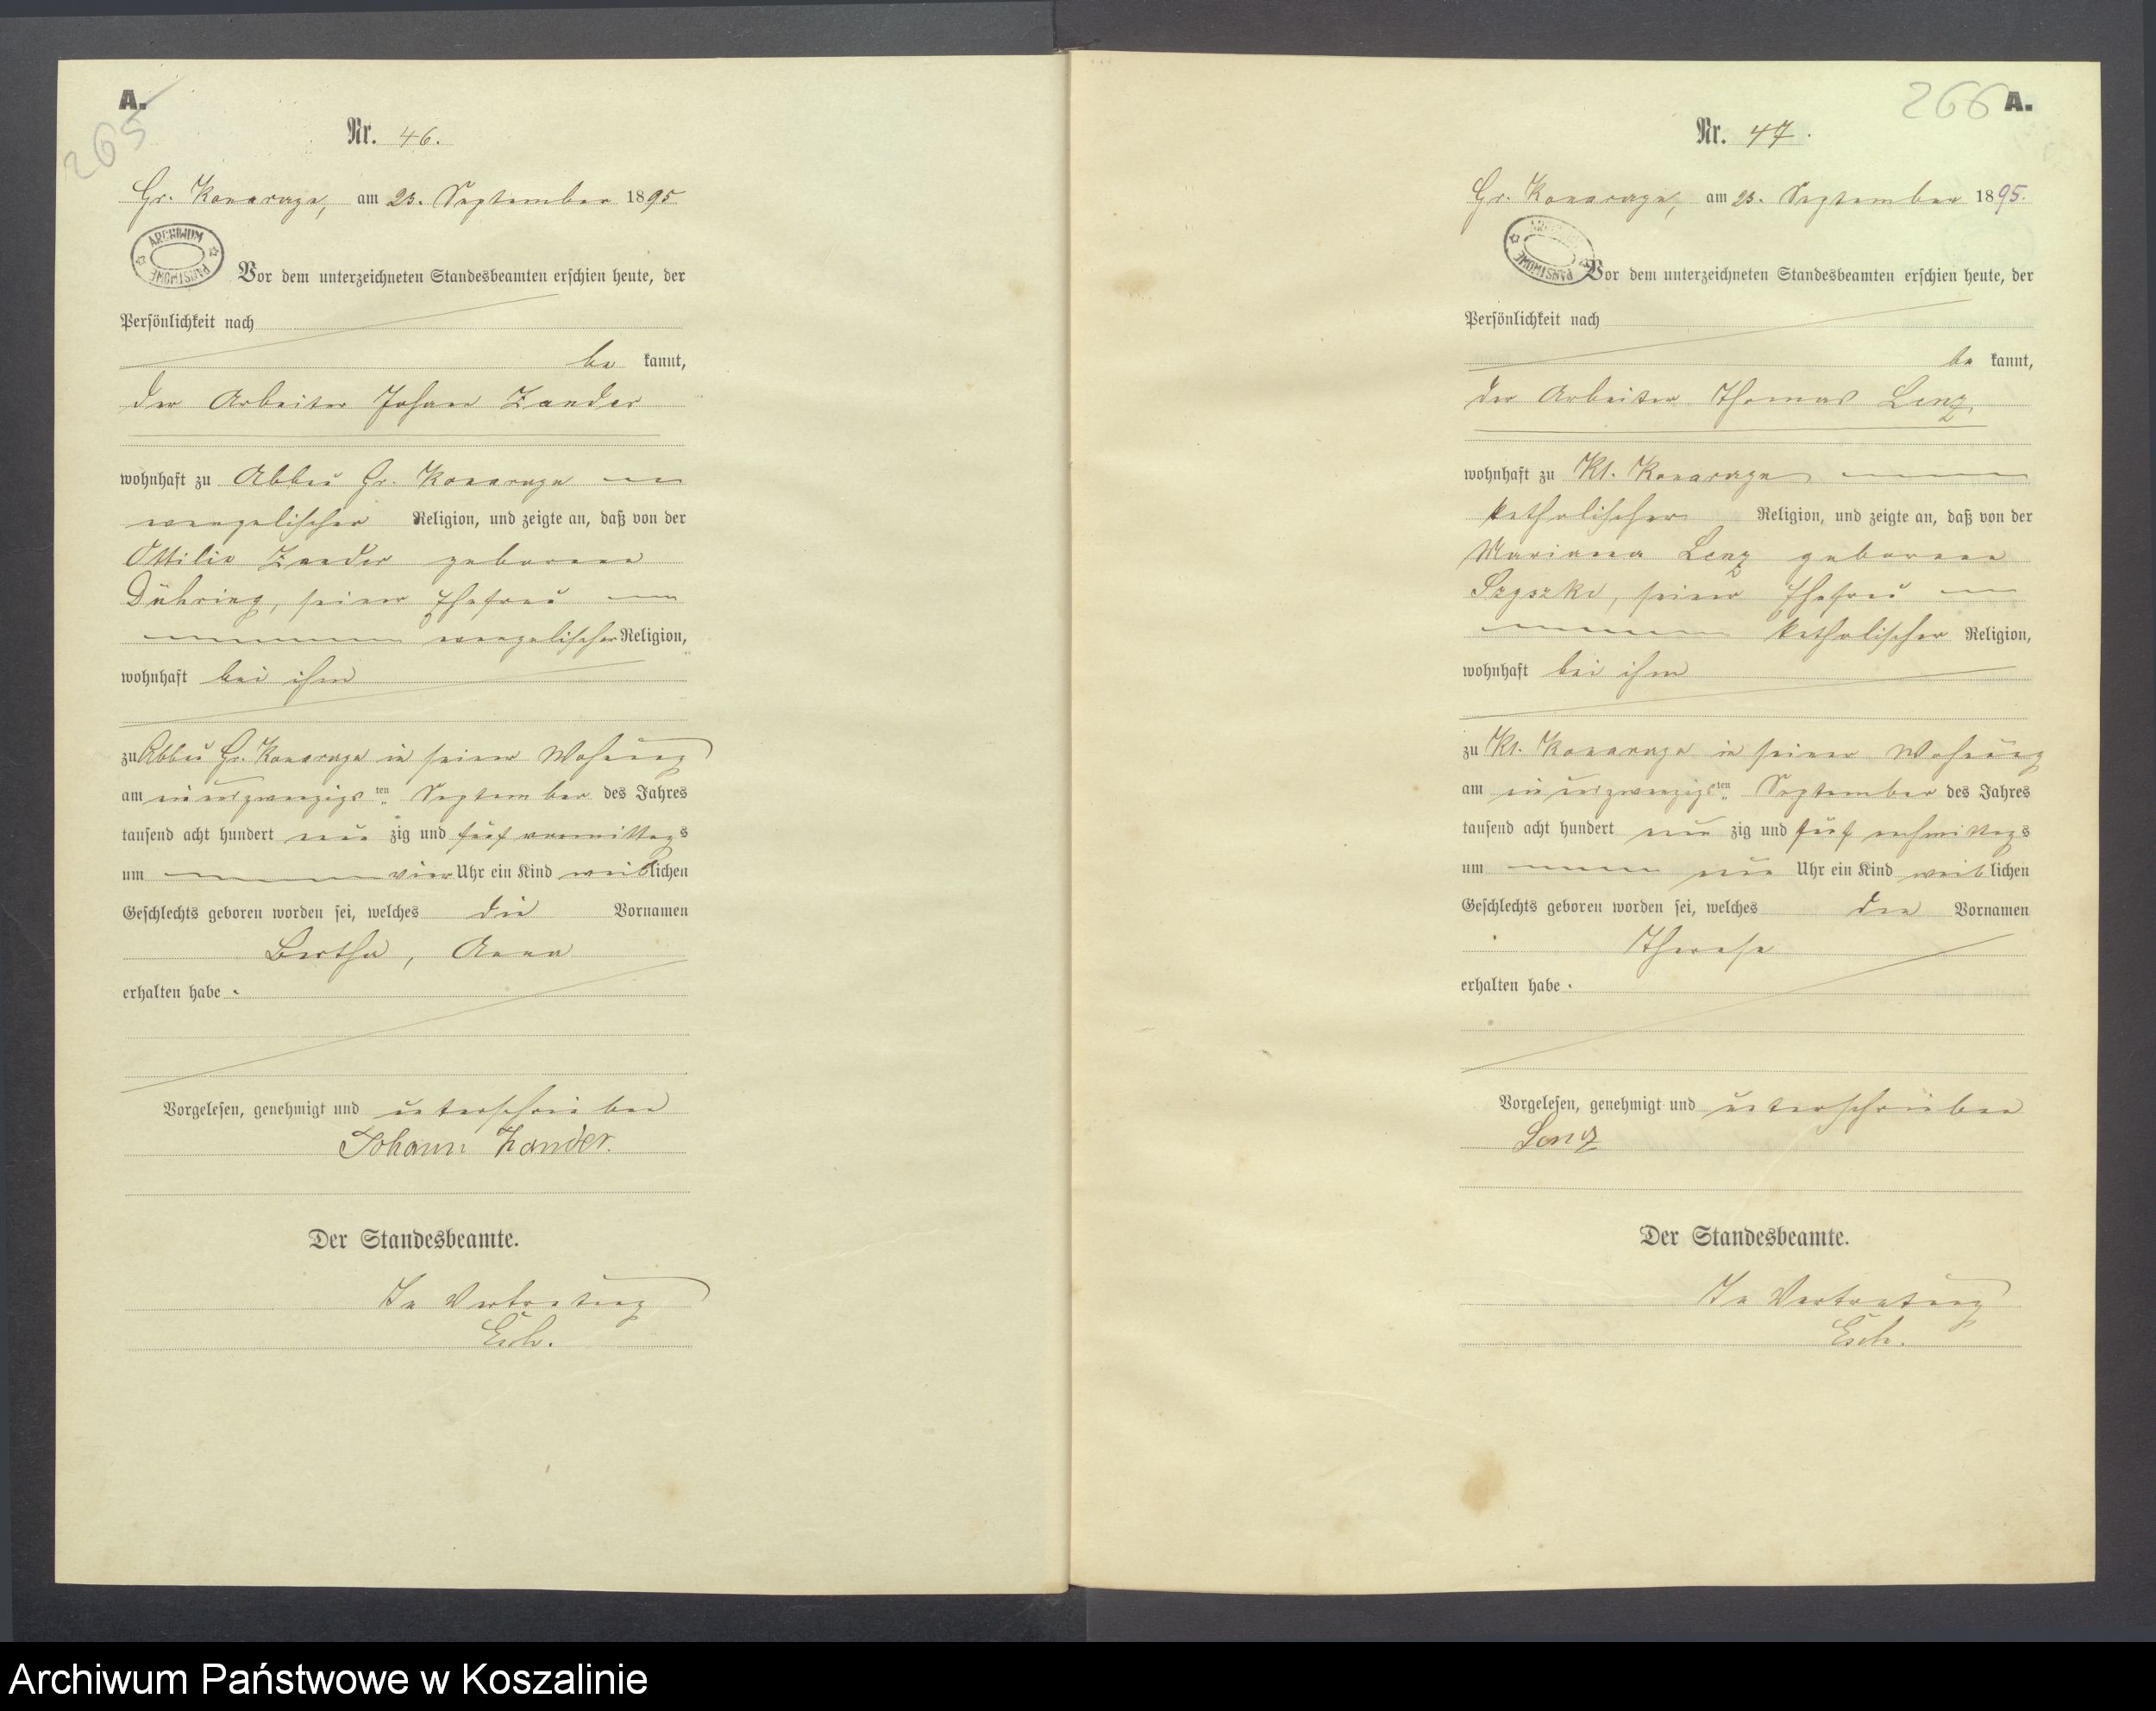 A.
265
Nr. 46.
Gr. Konarzyn, am 23. September 1895
ARCHIWUM PAŃSTWOWE
Vor dem unterzeichneten Standesbeamten erschien heute, der
Persönlichkeit nach
be kannt,
der Arbeiter Johann Zander
wohnhaft zu Abbau Gr. Konarzyn
evangelischer Religion, und zeigte an, daß von der
Ottilie Zander geborene
Dühring, seiner Ehefrau
evangelischer Religion,
wohnhaft bei ihm
zu Abbau Gr. Konarzyn in seiner Wohnung
am einundzwanzigsten September des Jahres
tausend acht hundert neun zig und fünf vormittags
um vier Uhr ein Kind weiblichen
Geschlechts geboren worden sei, welches die Vornamen
Bertha, Anna
erhalten habe.
Vorgelesen, genehmigt und unterschrieben
Johann Zander.
Der Standesbeamte.
In Vertretung
Esch.
266 A.
Nr. 47.
Gr. Konarzyn, am 23. September 1895.
ARCHIWUM PAŃSTWOWE
Vor dem unterzeichneten Standesbeamten erschien heute, der
Persönlichkeit nach
be kannt,
der Arbeiter Thomas Lenz
wohnhaft zu Kl. Konarzyn
katholischer Religion, und zeigte an, daß von der
Mariana Lenz geborene
Szyszke, seiner Ehefrau
katholischer Religion,
wohnhaft bei ihm
zu Kl. Konarzyn in seiner Wohnung
am einundzwanzigsten September des Jahres
tausend acht hundert neun zig und fünf nachmittags
um neun Uhr ein Kind weiblichen
Geschlechts geboren worden sei, welches den Vornamen
Therese
erhalten habe.
Vorgelesen, genehmigt und unterschrieben
Lenz
Der Standesbeamte.
In Vertretung
Esch.
Archiwum Państwowe w Koszalinie